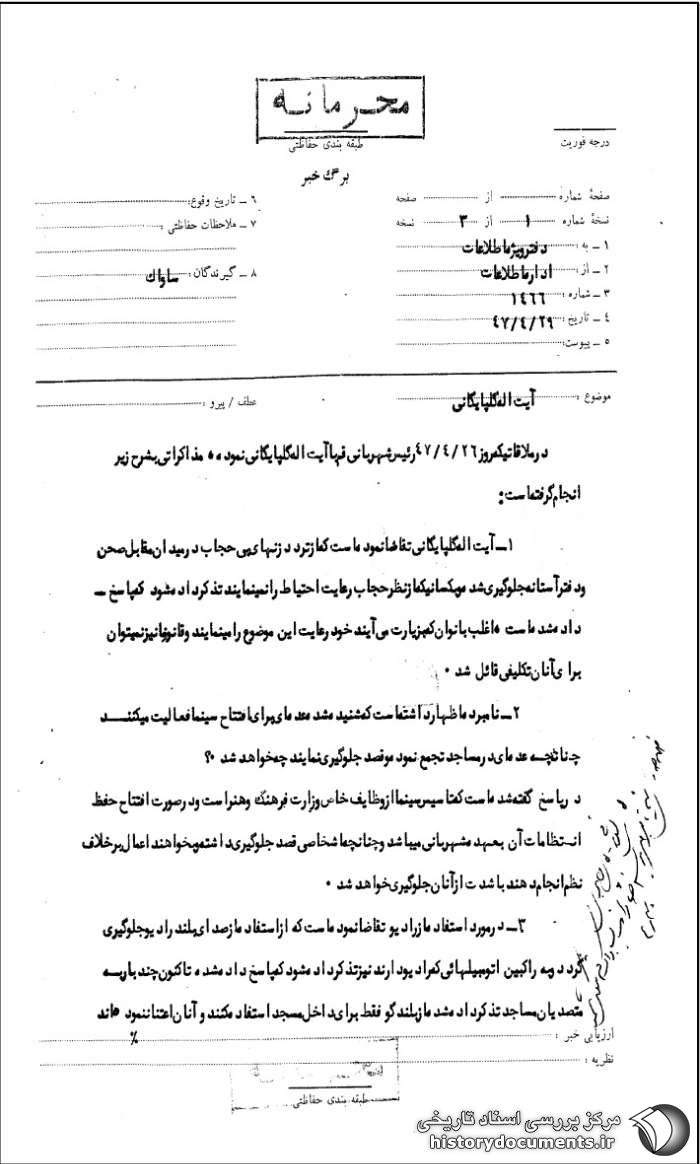 محرمانه
طبقه بندی حفاظتی
درجه فوریت
برگ خبر
صفحهٔ شماره از صفحه
نسخهٔ شماره ۱ از ۳ نسخه
۱ ـ به : دفترویژه اطلاعات
۲ ـ از : اداره اطلاعات
۳ ـ شماره : ۱۴۶۶
۴ ـ تاریخ : ۴۷/۴/۲۹
۵ ـ پیوست:
۶ ـ تاریخ وقوع:
۷ ـ ملاحظات حفاظتی :
۸ ـ گیرندگان : ساواک
موضوع : آیت اله گلپایگانی
عطف / پیرو :
در ملاقاتیکه روز ۴۷/۴/۲۶ رئیس شهربانی قم با آیت اله گلپایگانی نموده مذاکراتی بشرح زیر
انجام گرفته است :
۱ ـ آیت اله گلپایگانی تقاضا نموده است که از تردد زنهای بی حجاب در میدان مقابل صحن
و دفتر آستانه جلوگیری شده و بکسانیکه از نظر حجاب رعایت احتیاط را نمینمایند تذکر داده شود که پاسخ ـ
داده شده است اغلب بانوان که بزیارت می آیند خود رعایت این موضوع را مینمایند و قانونا نیز نمیتوان
برای آنان تکلیفی قائل شد ۰
۲ ـ نامبرده اظهار داشته است که شنیده شده عده ای برای افتتاح سینما فعالیت میکننـد
چنانچـه عده ای در مساجد تجمع نموده و قصد جلوگیری نمایند چه خواهد شد ؟۰
در پاسخ گفته شده است که تاسیس سینما از وظایف خاص وزارت فرهنگ و هنر است و در صورت افتتاح حفظ
انـتظامات آن بعهده شهربانی میباشد و چنانچه اشخاصی قصد جلوگیری داشته و بخواهند اعمال بر خلاف
نظم انجام دهند با شدت از آنان جلوگیری خواهد شد ۰
۳ ـ در مورد استفاده از رادیو تقاضا نموده است که از استفاده از صدای بلند رادیو جلوگیری
گردد و به راکبین اتومبیلهائی که رادیو دارند نیز تذکر داده شود که پاسخ داده شده تاکنون چند بار بـه
متصدیان مساجد تذکر داده شده از بلندگو فقط برای داخل مسجد استفاده کنند و آنان اعتنا ننموده اند
٪
ارزیابی خبر :
نظریه :
طبقه بندی حفاظتی
مرکز بررسی اسناد تاریخی
historydocuments.ir